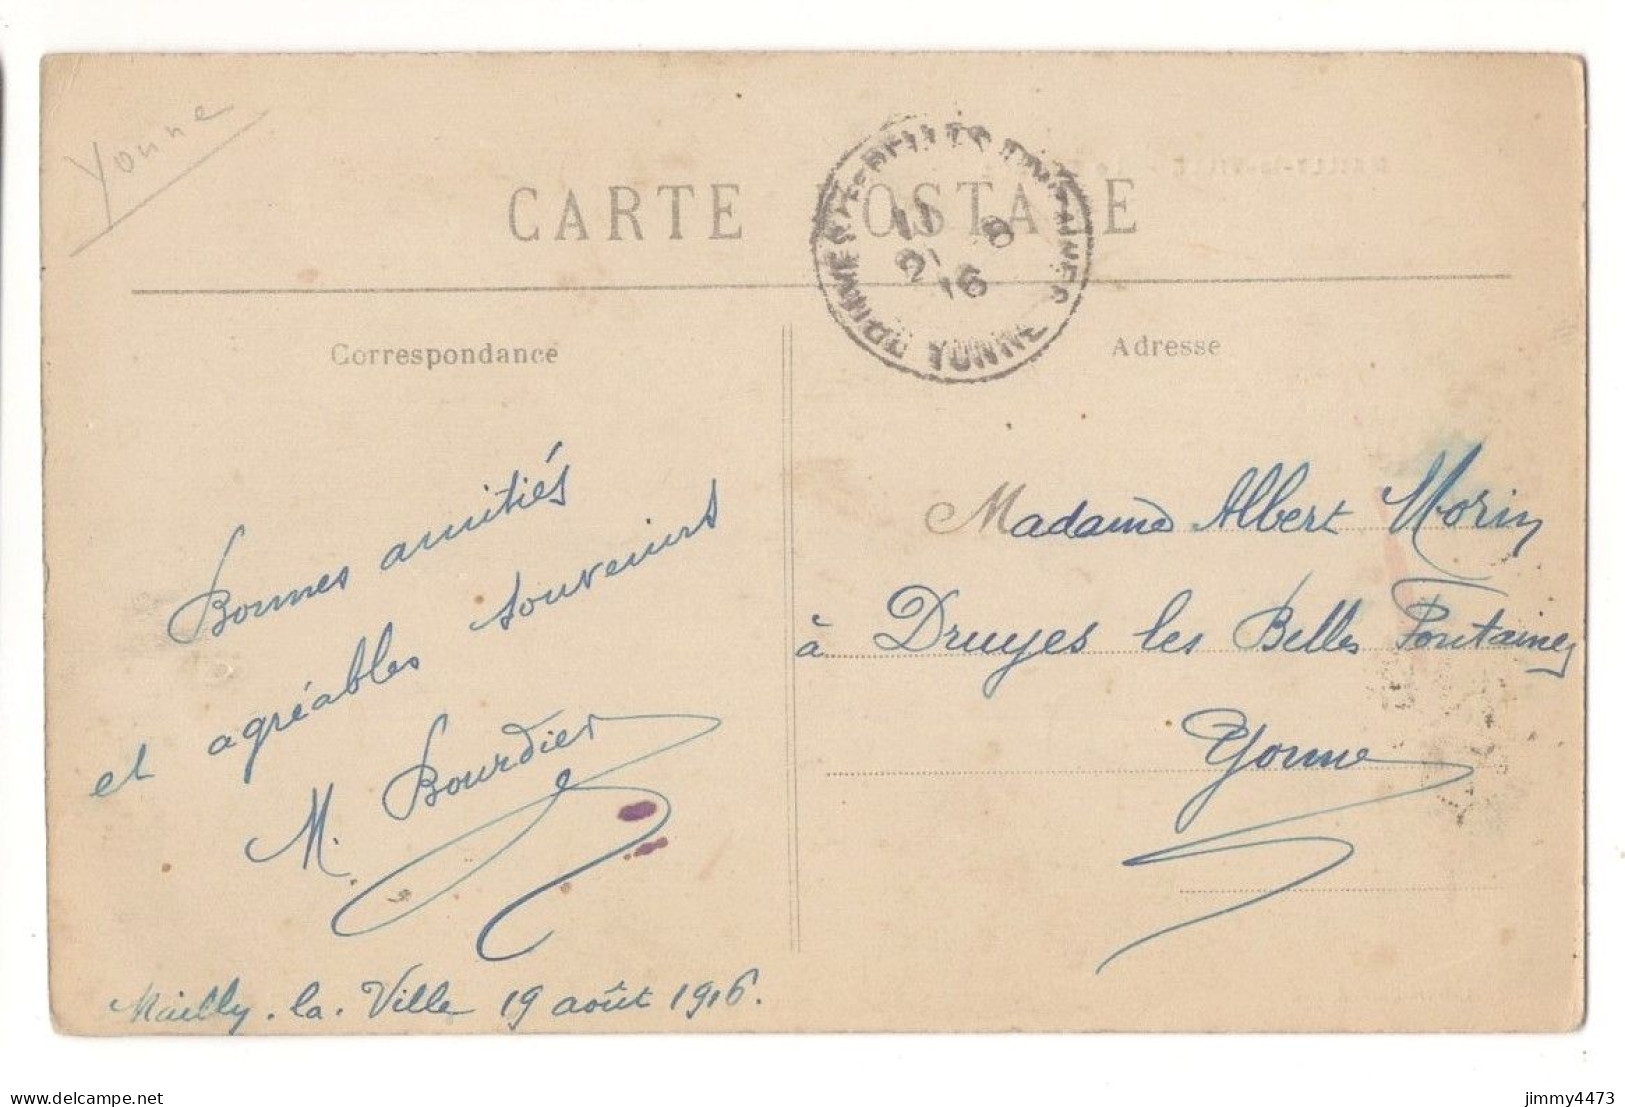 Yonne
CARTE POSTALE
YONNE
21 8
16
Correspondance
Adresse
Bonnes amitiés
et agréables souvenirs
M. Bourdier
Mailly-la-Ville 19 août 1916.
Madame Albert Morin
à Druyes les Belles Fontaines
Yonne
www.delcampe.net
jimmy4473